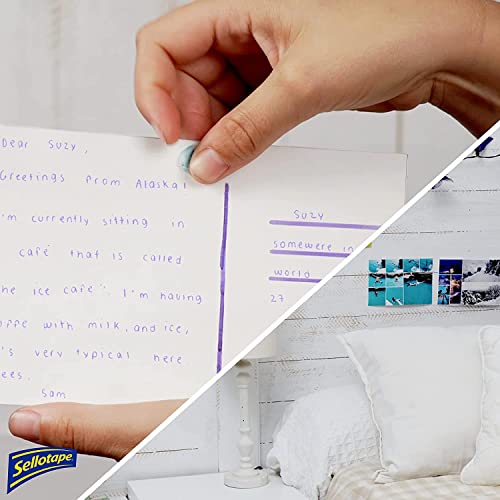 Dear Suzy,
Greetings from Alaska!
I'm currently sitting in
café that is called
the ice café. I'm having
with milk, and ice,
very typical here
Sam
Suzy
somewere in
world
27
Sellotape